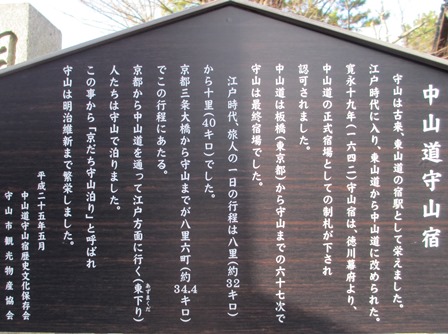 中山道守山宿
守山は古来、東山道の宿駅として栄えました。
江戸時代に入り、東山道から中山道に改められた。
寛永十九年（一六四二）守山宿は、徳川幕府より、
中山道の正式宿場としての制札が下され
認可されました。
中山道は板橋（東京都）から守山までの六十七次で
守山は最終宿場でした。
江戸時代、旅人の一日の行程は八里（約32キロ）
から十里（40キロ）でした。
京都三条大橋から守山までが八里六町（約34.4キロ）
でこの行程にあたる。
京都から中山道を通って江戸方面に行く（東下り）
あずまくだ
人たちは守山で泊りました。
この事から「京だち守山泊り」と呼ばれ
守山は明治維新まで繁栄しました。
平成二十五年五月
中山道守山宿歴史文化保存会
守山市観光物産協会